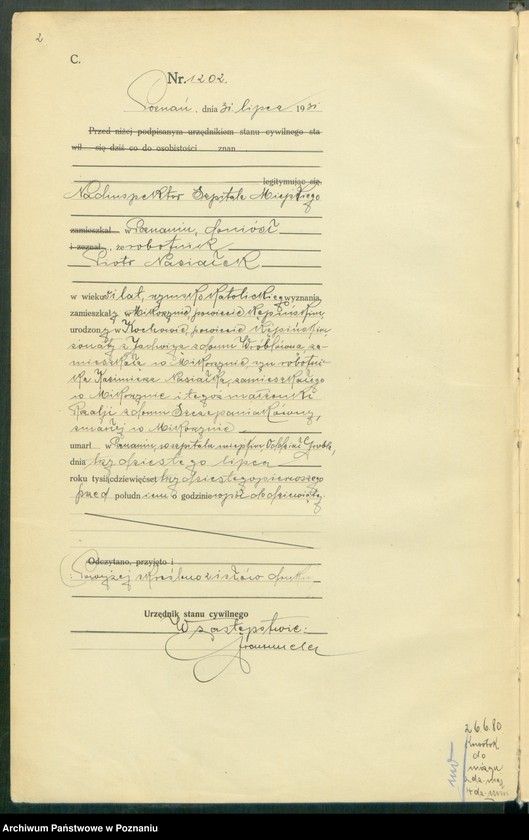 2
C.
Nr. 1202.
Poznań, dnia 31 lipca 1931
Przed niżej podpisanym urzędnikiem stanu cywilnego sta
wił się dziś co do osobistości znan
legitymując się
Nadinspektor Szpitala Miejskiego
zamieszkał w Poznaniu, doniósł
i zeznał, że robotnik
Piotr Nasiałek
w wieku lat, rzymsko katolickiego wyznania,
zamieszkały w Mikorzynie, powiecie Kępińskim,
urodzony w Kochowie, powiecie Kępińskim
żonaty z Jadwigą z domu Wróblówna za-
mieszkałą w Mikorzynie, syn robotni-
ka Kazimierza Nasiałka, zamieszkałego
w Mikorzynie i tegoż małżonki
Rozalji z domu Szczepaniakówny,
zmarłej w Mikorzynie
umarł w Poznaniu, w szpitalu miejskim
dnia trzydziestego lipca
roku tysiącdziewięćset trzydziestegopierwszego
przed południem o godzinie wpół do dziewiątej
Odczytano, przyjęto i
Powyżej skreślono słów druk.
Urzędnik stanu cywilnego
W zastępstwie:
26.6.80
do
Archiwum Państwowe w Poznaniu